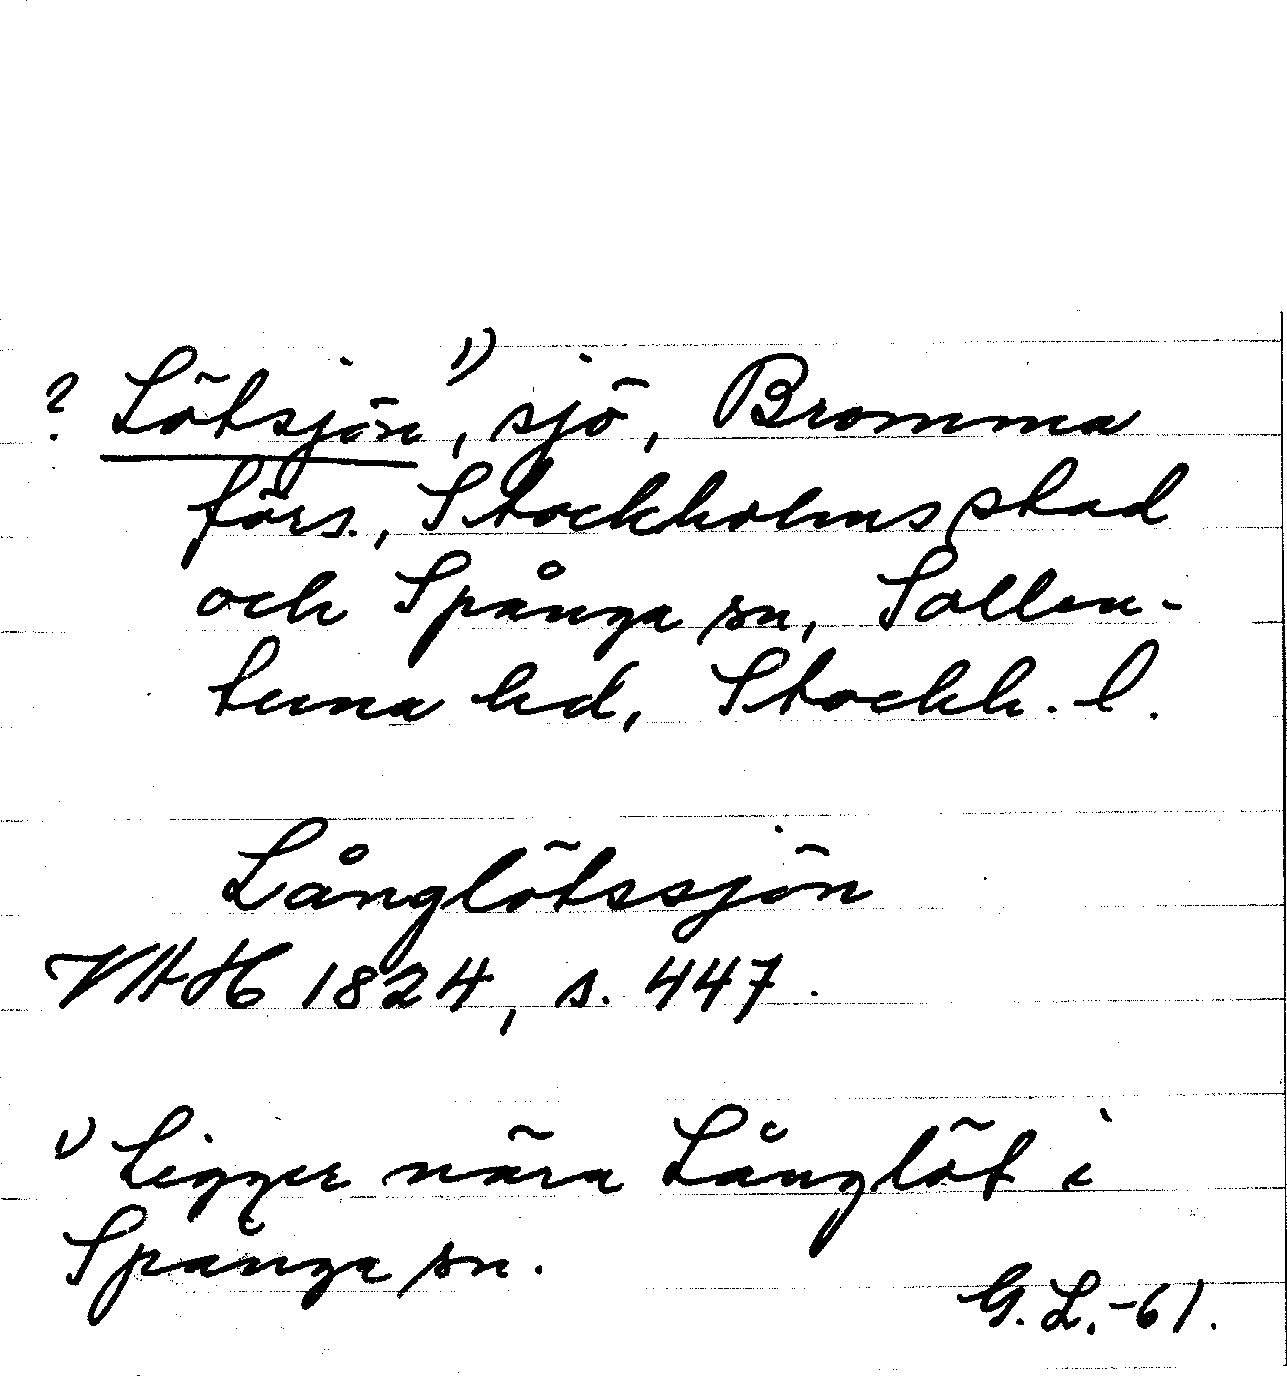 ? Lötsjön 1), sjö, Bromma
förs., Stockholms stad
och Spånga sn, Sollen-
tuna hd, Stockh. l.
Långlötssjön
VAH 1824, s. 447.
1) Ligger nära Långlöt i
Spånga sn.
G. L. -61.